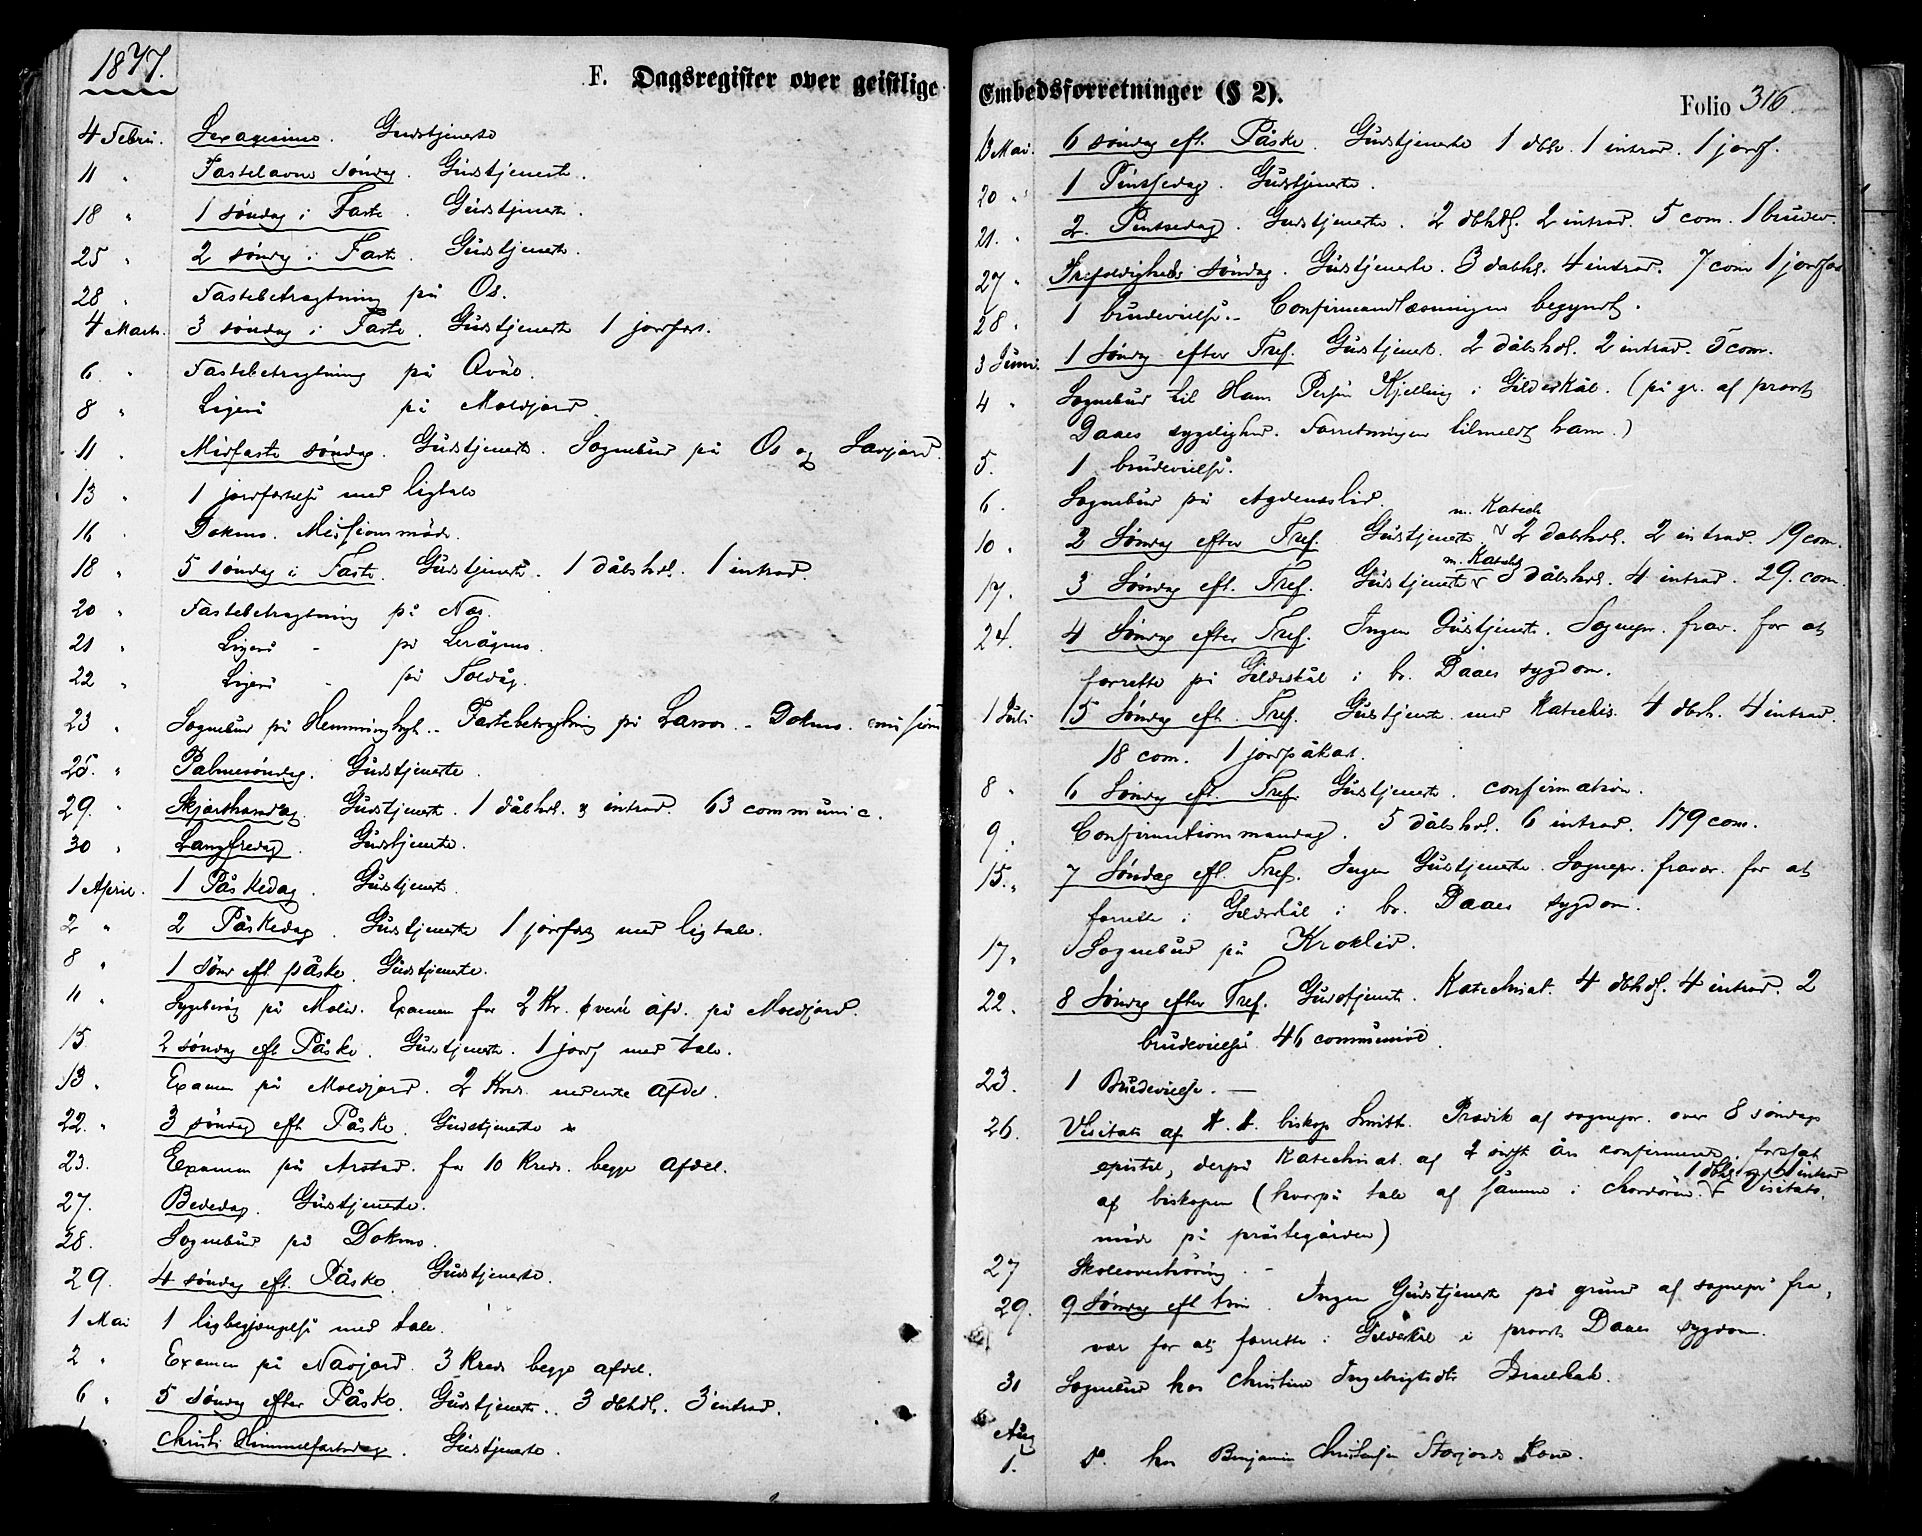 1877.
F. Dagsregister over geistlige
4 Febru. Sexagesima. Gudstjeneste
11 " Fastelavns søndag. Gudstjeneste.
18 " 1 søndag i Faste. Gudstjeneste.
25 " 2 søndg i Faste. Gudstjeneste.
28 " Fastebetragtning på Os.
4 Marts. 3 søndag i Faste. Gudstjeneste 1 jordfæst.
6 " Fastebetragtning på
8 " Ligeså på Moldjord
11 " Midfaste søndag. Gudstjeneste. Sognebud på Os og
13 " 1 jordfæstelse med ligtale
16 " Dokmo. Missionsmöde.
18 " 5 søndag i Faste. Gudstjeneste. 1 dåbshdl. 1 introd.
20 " Fastebetragtning på Næs.
21 " Ligeså - på
22 " Ligeså - på Toldåg.
23 " Sognebud på .- Fastebetragtning på - Dokmo. mission
25. " Palmesøndag. Gudstjeneste
29. " Skjærthorsdag. Gudstjeneste. 1 dåbhdl. & introd. 63 communic.
30 " Langfredag. Gudstjeneste.
1 April. 1 Påskedag. Gudstjeneste.
2 " 2 Påskedag. Gudstjeneste 1 jordfæst med ligtale.
8 " 1 sönd eft påske. Gudstjeneste.
11 " Sygebesög på Molid. Examen for 2 Kr. øverste afd. på Moldjord.
15 2 söndag eft Påske. Gudstjeneste. 1 jordf med tale.
13 " Examen på Moldjord. 2 Kreds. nederste afdel.
22. " 3 söndag eft Påske. Gudstjeneste
23. Examen på Arstad. for 10 kreds. begge afdel.
27. Bededag. Gudstjeneste.
28. Sognebud på Dokmo.
29. 4 søndag eft. Påske. Gudstjeneste.
1 Mai 1 ligbegjængelse med tale.
2 " Examen på Navjord. 3 Kreds begge afdel.
6 " 5 Söndag efter Påske. Gudstjeneste. 3 dbhdl. 3 introd.
" Christi Himmelfartsdag. Gudstjeneste.
Embedsforretninger (§ 2).
Folio 316
13 Mai. 6 söndag eft. Påske. Gudstjeneste 1 dbhdl. 1 introd. 1 jordf.
20 " 1 Pintsedag. Gudstjeneste.
21. " 2. Pintsedag. Gudstjeneste. 2 dbhdl. 2 introd. 5 com. 1 brudev.
27 " Trefoldigheds Söndag. Gudstjeneste. 3 dåbhl. 4 introd. 7 com 1 jordfæs
28 " 1 brudevielse. - Confirmandlæsningen begyndt.
3 Juni. 1 Söndg efter Tref. Gudstjenest. 2 dåbshdl. 2 introd. 5 com.
4 " Sognebud til Hans Persen Kjelling i Gildeskål. (på gr. af provst
Daaes sygelighed. Forretningen tilmeldt ham.)
5. 1 brudevielse.
6. Sognebud på
m. Katech
10 " 2 Söndag efter Tref. Gudstjeneste v 2 dåbshdl. 2 introd. 19 com.
m. Katech
17. 3 Söndag eft. Tref. Gudstjeneste v 3 dåbshdl. 4 introd. 29. com.
24. 4 Söndag efter Tref. Ingen Gudstjeneste. Sognepr. frav. for at
forrette på Gildeskål i br. Daaes sygdom.
1 Juli 5 Söndag eft. Tref. Gudstjeneste med Katechis. 4 dbsh. 4 introd.
18 com. 1 jordpåkast.
8 " 6 Söndg eft. Tref. Gudstjeneste. confirmation.
9 " Confirmationsmandag. 5 dåbshdl. 6 introd. 179 com.
15. " 7 Söndag eft. Tref. Ingen Gudstjeneste. Sognepr. fravær. for at
forrette i Gildeskål i br. Daaes sygdom.
17 " Sognebud på Kroklid.
22. 8 Söndag efter Tref. Gudstjeneste. Katechisat. 4 dbhdl. 4 introd. 2
brudevielse 46 communic.
23. 1 Brudevielse. -
26. Visitats af biskop Smitt. Prædik af sognepr. over 8 söndags
epistel, derpå Katechisat. af 2 sidste års konfirmered. fortsat
1 dbhdl og 1 introd
af biskopen (hvorpå tale af samme i chordören. v Visitats.
möde på præstegården)
27 Skoleoverhöring. -
29. 9 Söndag eft trin. Ingen Gudstjeneste på grund af sognepr fra,
vær for at forrette i Gildeskål i provst Daaes sygdom.
31 Sognebud hos Christine Ingebrigtsdtr
Aug
1. D. hos Benjamin Christensen Storjords Kone.